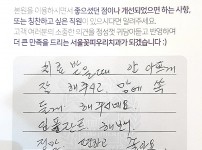 본원을 이용하시면서 좋으셨던 점이나 개선되었으면 하는 사항,
또는 칭찬하고 싶은 직원이 있으시다면 말씀해 주세요.
고객 여러분의 소중한 의견을 정성껏 귀담아듣고 반영하여
더 큰 만족을 드리는 서울꽃피우리치과가 되겠습니다 :)
치료 받을때 안 아프게
잘 해주시고, 맘에 쏙
들게 해주셔요.
임플란트 해봤
정말